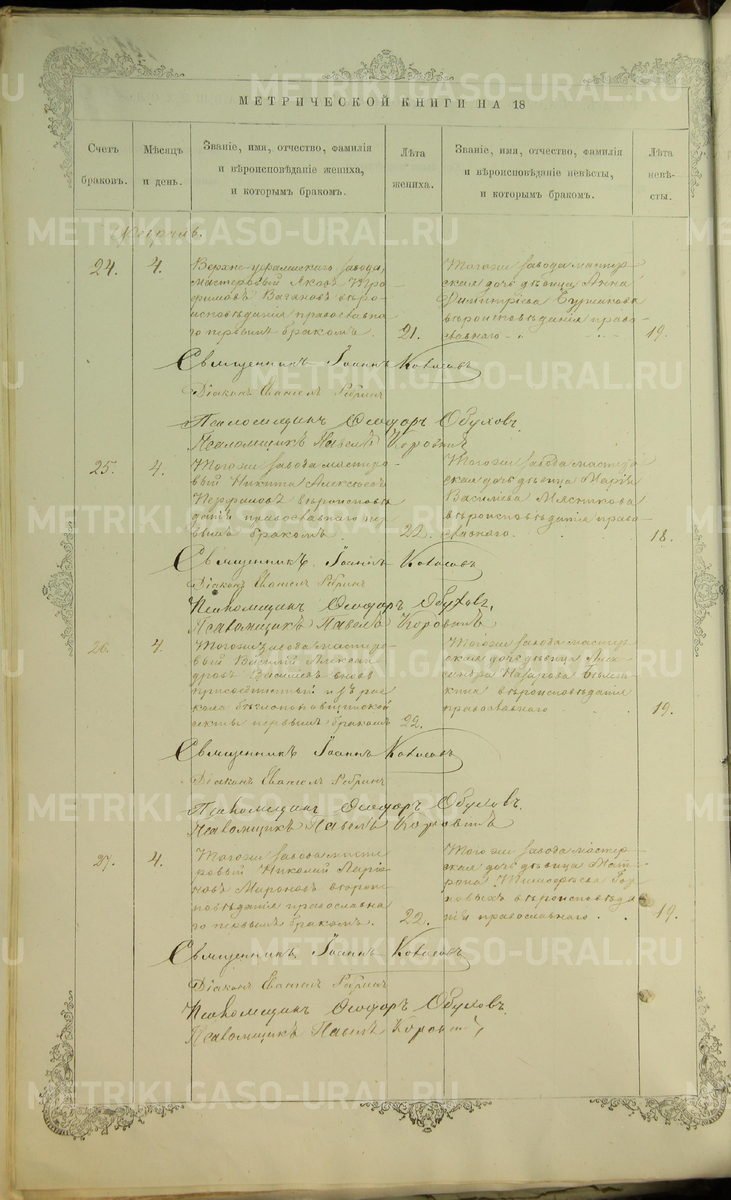 МЕТРИЧЕСКОЙ КНИГИ НА 18
Счетъ браковъ.
Мѣсяцъ и день.
Званіе, имя, отчество, фамилія и вѣроисповѣданіе жениха, и которымъ бракомъ.
Лѣта жениха.
Званіе, имя, отчество, фамилія и вѣроисповѣданіе невѣсты, и которымъ бракомъ.
Лѣта невѣсты.
24.
4.
Верхне-уфалейскаго завода,
мастеровый Яковъ
Вагановъ вѣро-
исповѣданія православна-
го первымъ бракомъ.
21.
Тогоже завода мастер-
ская дочь дѣвица Анна
Димитріева
вѣроисповѣданія право-
славнаго
19.
Священникъ Іоаннъ
Діаконъ
Псаломщикъ Ѳеодоръ Обуховъ.
Псаломщикъ Павелъ Коровинъ
25.
4.
Тогоже завода мастеро-
вый Никита Алексѣевъ
вѣроисповѣ-
даній православнаго пер-
вымъ бракомъ.
22.
Тогоже завода мастер-
ская дочь дѣвица Марія
Василіева Мясникова
вѣроисповѣданія право-
славнаго.
18.
Священникъ Іоаннъ
Діаконъ
Псаломщикъ Ѳеодоръ Обуховъ.
Псаломщикъ Павелъ Коровинъ
26.
4.
Тогоже завода мастеро-
вый Василій Александ-
дровъ вновь
присоединенный изъ рас-
кола
секты первымъ бракомъ
22.
Тогоже завода мастер-
ская дочь дѣвица Алек-
сандра Назарова
вѣроисповѣданія
православнаго
19.
Священникъ Іоаннъ
Діаконъ
Псаломщикъ Ѳеодоръ Обуховъ.
Псаломщикъ Павелъ Коровинъ
27.
4.
Тогоже завода масте-
ровый Николай Ларіо-
новъ Мироновъ вѣроис-
повѣданія православна-
го первымъ бракомъ.
22.
Тогоже завода мастер-
ская дочь дѣвица Мат-
рона Тимоѳеева
вѣроисповѣда-
нія православнаго.
19.
Священникъ Іоаннъ
Діаконъ
Псаломщикъ Ѳеодоръ Обуховъ.
Псаломщикъ Павелъ Коровинъ
METRIKI.GASO-URAL.RU